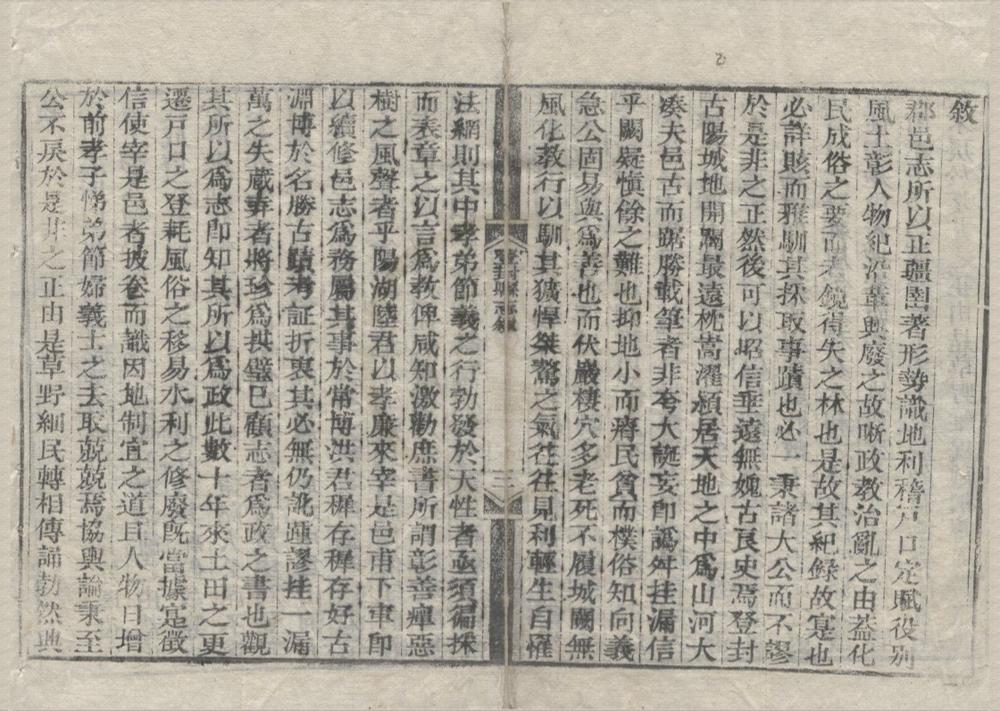 敘
郡邑志所以正疆圉著形勢識地利稽戶口定賦役別
風土彰人物紀沿畫興廢之故晰政教治亂之由葢化
民成俗之要而考鏡得失之林也是故其紀錄故寔也
必詳賅而雅馴其採取事蹟也必一秉諸大公而不謬
於是非之正然後可以昭信垂遠無媿古良史焉登封
古陽城地開闢最遠枕嵩濯潁居天地之中爲山河大
湊夫邑古而踞勝載筆者非夸大誕妄即譌舛挂漏信
乎闕疑愼餘之難也抑地小而瘠民貧而樸俗知向義
急公固易與爲善也而伏巖棲穴多老死不履城闠無
風化教行以馴其獷悍桀驁之氣徃徃見利輕生自罹
法網則其中孝弟節義之行勃發於天性者亟須徧採
而表章之以言爲敎俾咸知激勸庶書所謂彰善癉惡
樹之風聲者乎陽湖陸君以孝廉來宰是邑甫下車卽
以續修邑志爲務屬其事於常博洪君穉存穉存好古
淵博於名勝古蹟考証折衷其必無仍訛踵謬挂一漏
萬之失蔵弆者將珍爲拱璧巳顧志者爲政之書也觀
其所以爲志卽知其所以爲政此數十年來土田之更
遷戶口之登耗風俗之移易水利之修廢旣當據寔徵
信使宰是邑者披卷而識因地制宜之道且人物日增
於前孝子悌弟節婦義士之去取兢兢焉協輿論秉至
公不戾於是非之正由是草野細民轉相傳誦勃然興